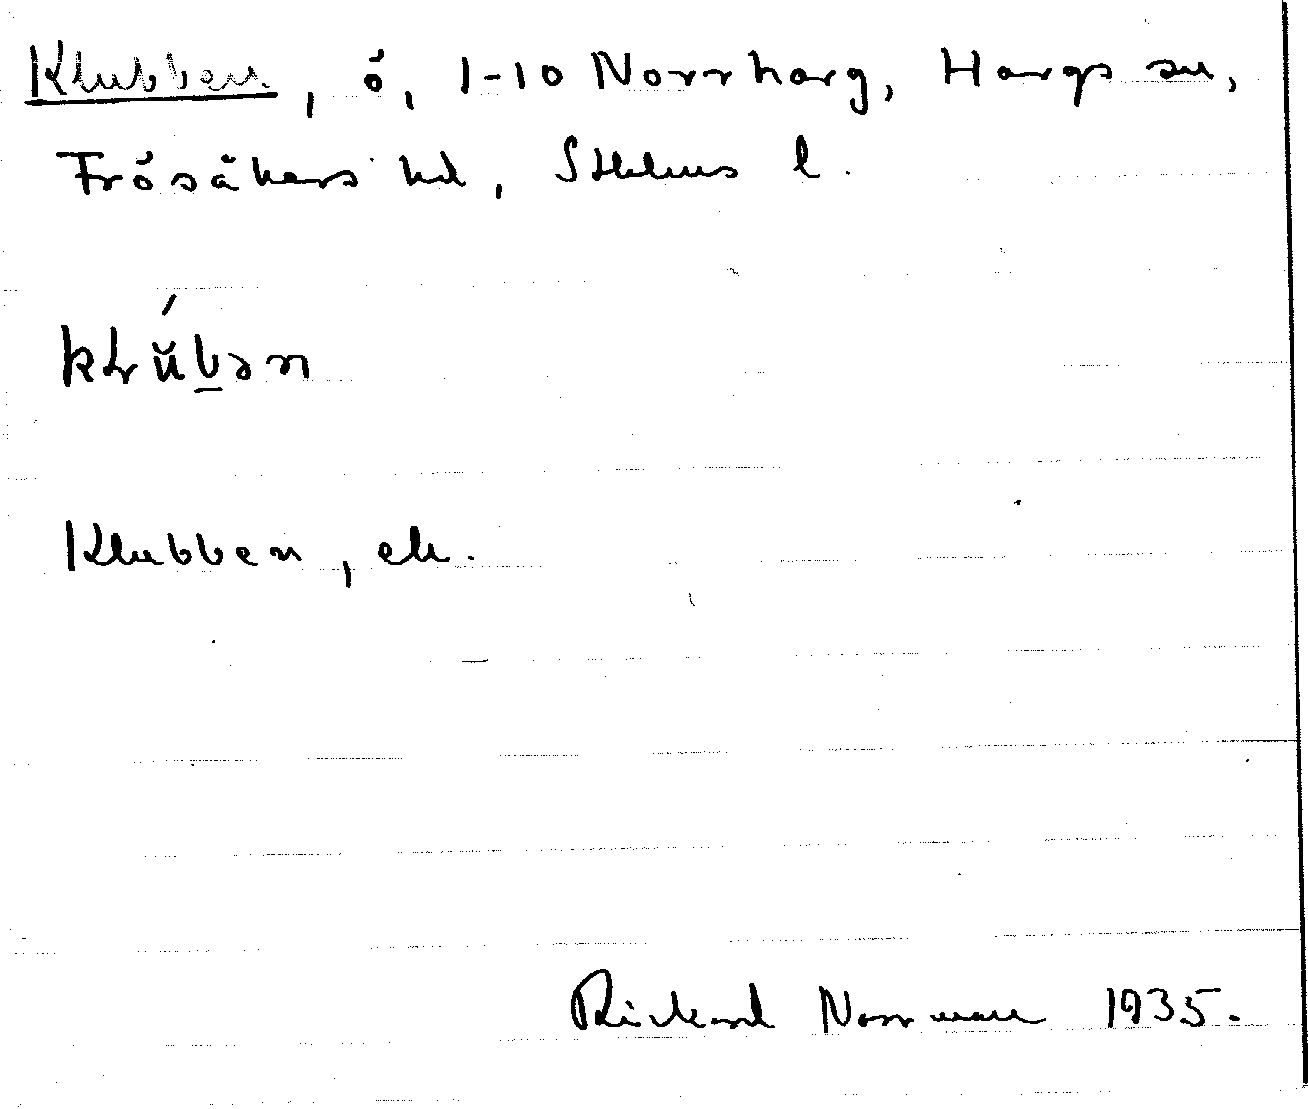 Klubben, ö, 1-10 Norrharg, Hargs sn,
Frösåkers hd, Sthlms l.
Klubben, ek.
Rickard Norrman 1935.